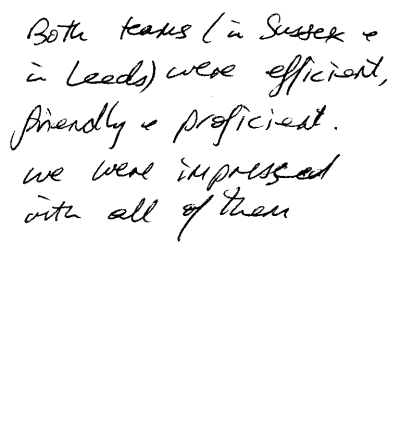 Both teams (in Sussex &
in Leeds) were efficient,
friendly & proficient.
we were impressed
with all of them